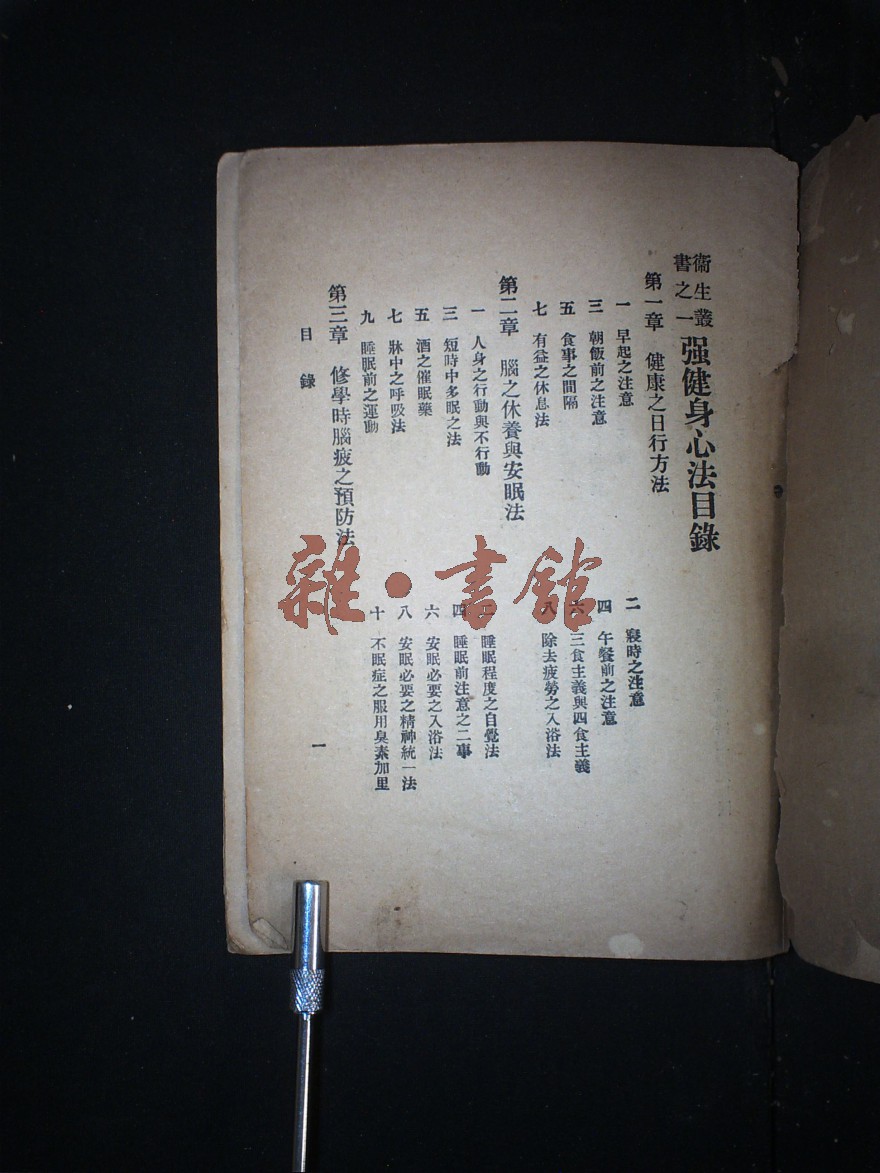 衞生叢書之一 强健身心法目錄
第一章 健康之日行方法
一 早起之注意
二 寢時之注意
三 朝飯前之注意
四 午餐前之注意
五 食事之間隔
六 三食主義與四食主義
七 有益之休息法
八 除去疲勞之入浴法
第二章 腦之休養與安眠法
一 人身之行動與不行動
二 睡眠程度之自覺法
三 短時中多眠之法
四 睡眠前注意之二事
五 酒之催眠藥
六 安眠必要之入浴法
七 牀中之呼吸法
八 安眠必要之精神統一法
九 睡眠前之運動
十 不眠症之服用臭素加里
第三章 修學時腦疲之預防法
目錄
一
雜·書館